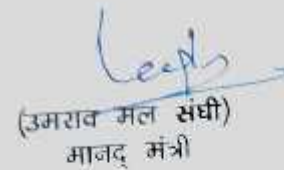 (उमराव मल संघी)
मानद् मंत्री